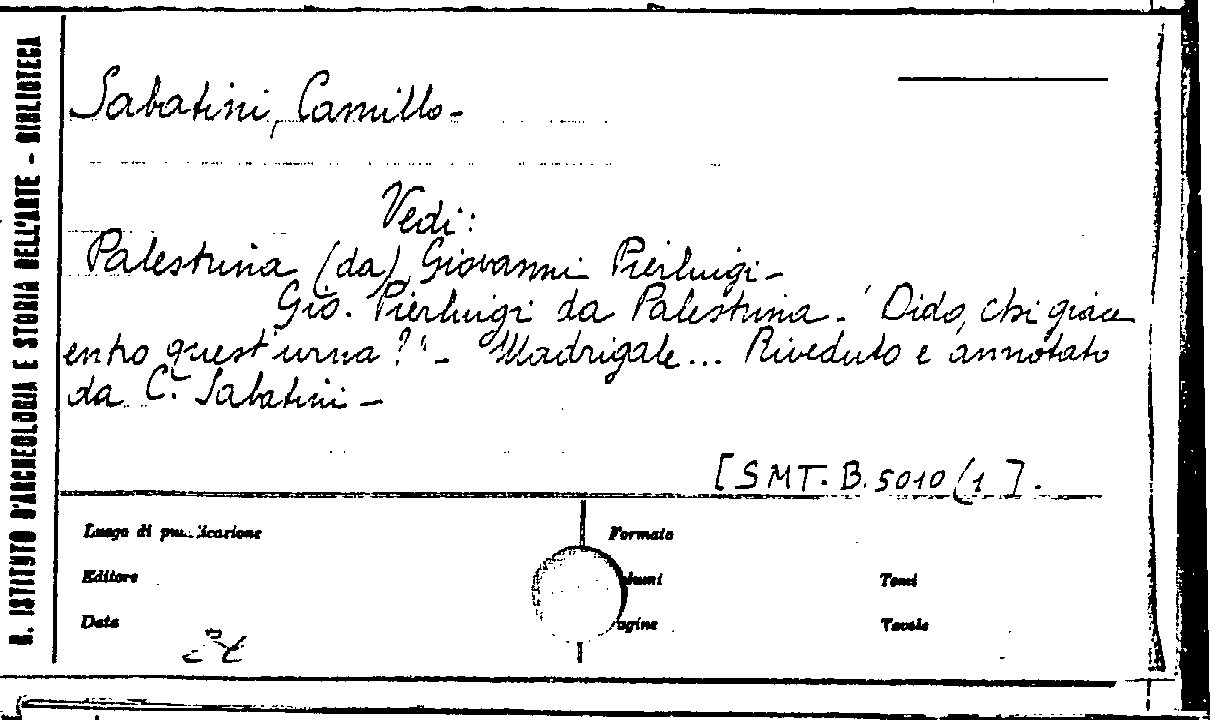 R. ISTITUTO D'ARCHEOLOGIA E STORIA DELL'ARTE - BIBLIOTECA
Sabatini, Camillo -
Vedi:
Palestrina (da) Giovanni Pierluigi -
Gio. Pierluigi da Palestrina - "Dido, chi giace
entro quest'urna?" - Madrigale... Riveduto e annotato
da C. Sabatini -
[SMT. B. 5010 (1].
Luogo di pubblicazione
Formato
Editore
lumi
Tomi
Data
agine
Tavole